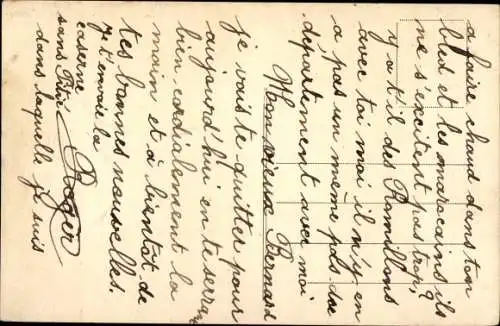 a faire chaud dans ton
bled et les marocains ils
ne s'excitent pas trop,
y a t'il des Romillons
avec toi moi il n'y en
a pas un même pas du
département avec moi
Mon vieux Bernard
je vais te quitter pour
aujourd'hui en te serrant
bien cordialement la
main et à bientôt de
tes bonnes nouvelles.
Roger
Je t'envoie la
caserne
sans
dans laquelle je suis